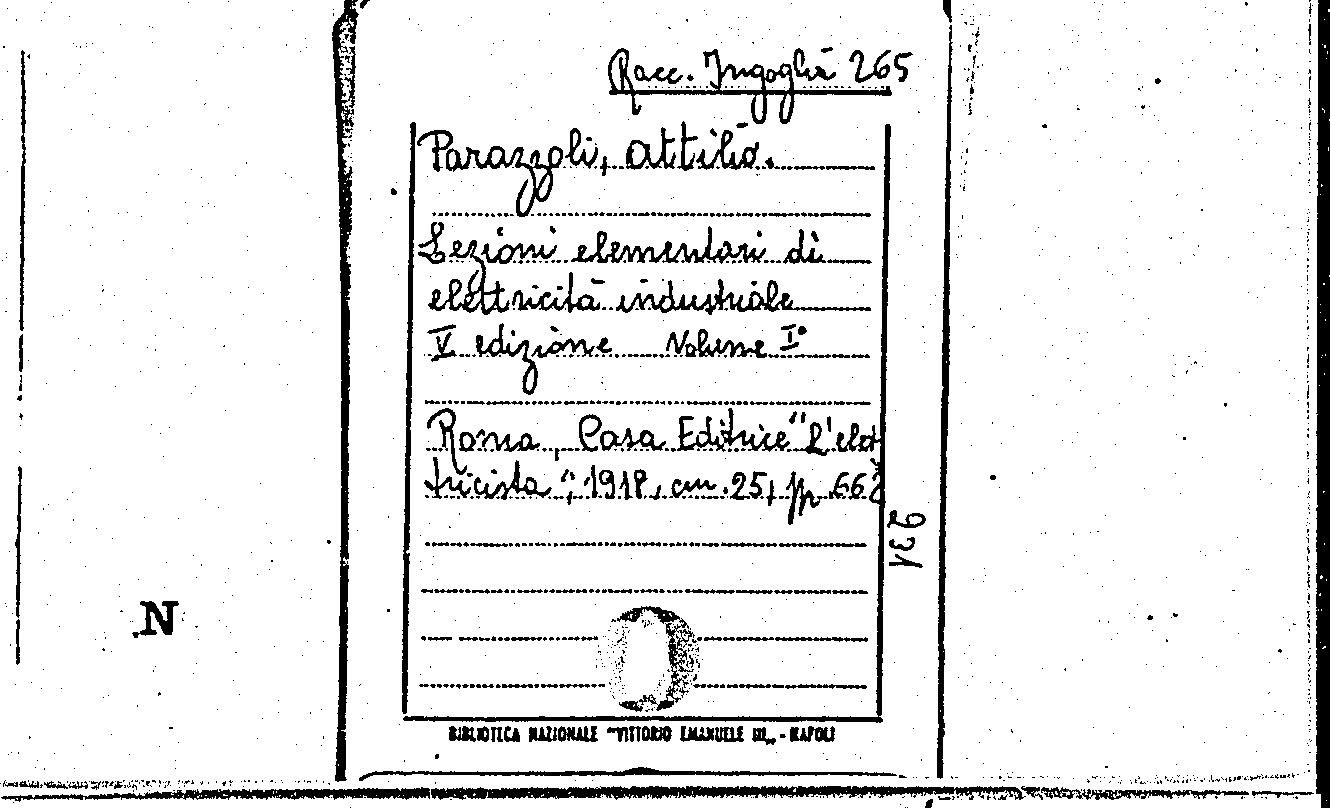 Racc. Ingoglia 265
Parazzoli, Attilio.
Lezioni elementari di
elettricità industriale
V edizione Volume I°
Roma, Casa Editrice "L'elet
tricista", 1918, cm. 25, pp. 662
931
N
BIBLIOTECA NAZIONALE "VITTORIO EMANUELE III" - NAPOLI